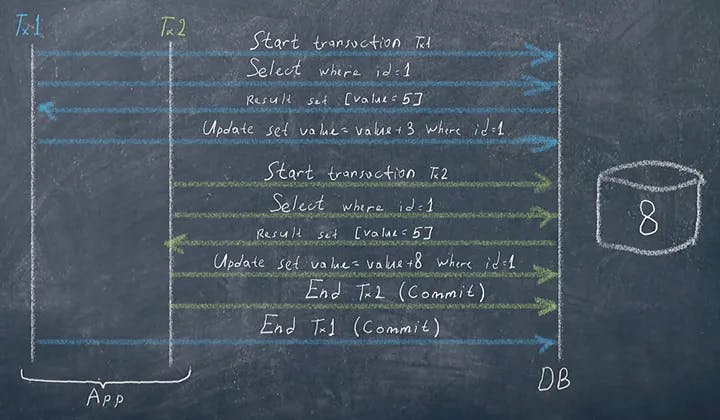 Tx1 Tx2
Start transuction Tx1
Select where id=1
Result set [value=5]
Update set value=value+3 where id=1
Start transuction Tx2
Select where id=1
Result set [value=5]
Update set value=value+8 where id=1
End Tx2 (Commit)
End Tx1 (Commit)
8
App
DB